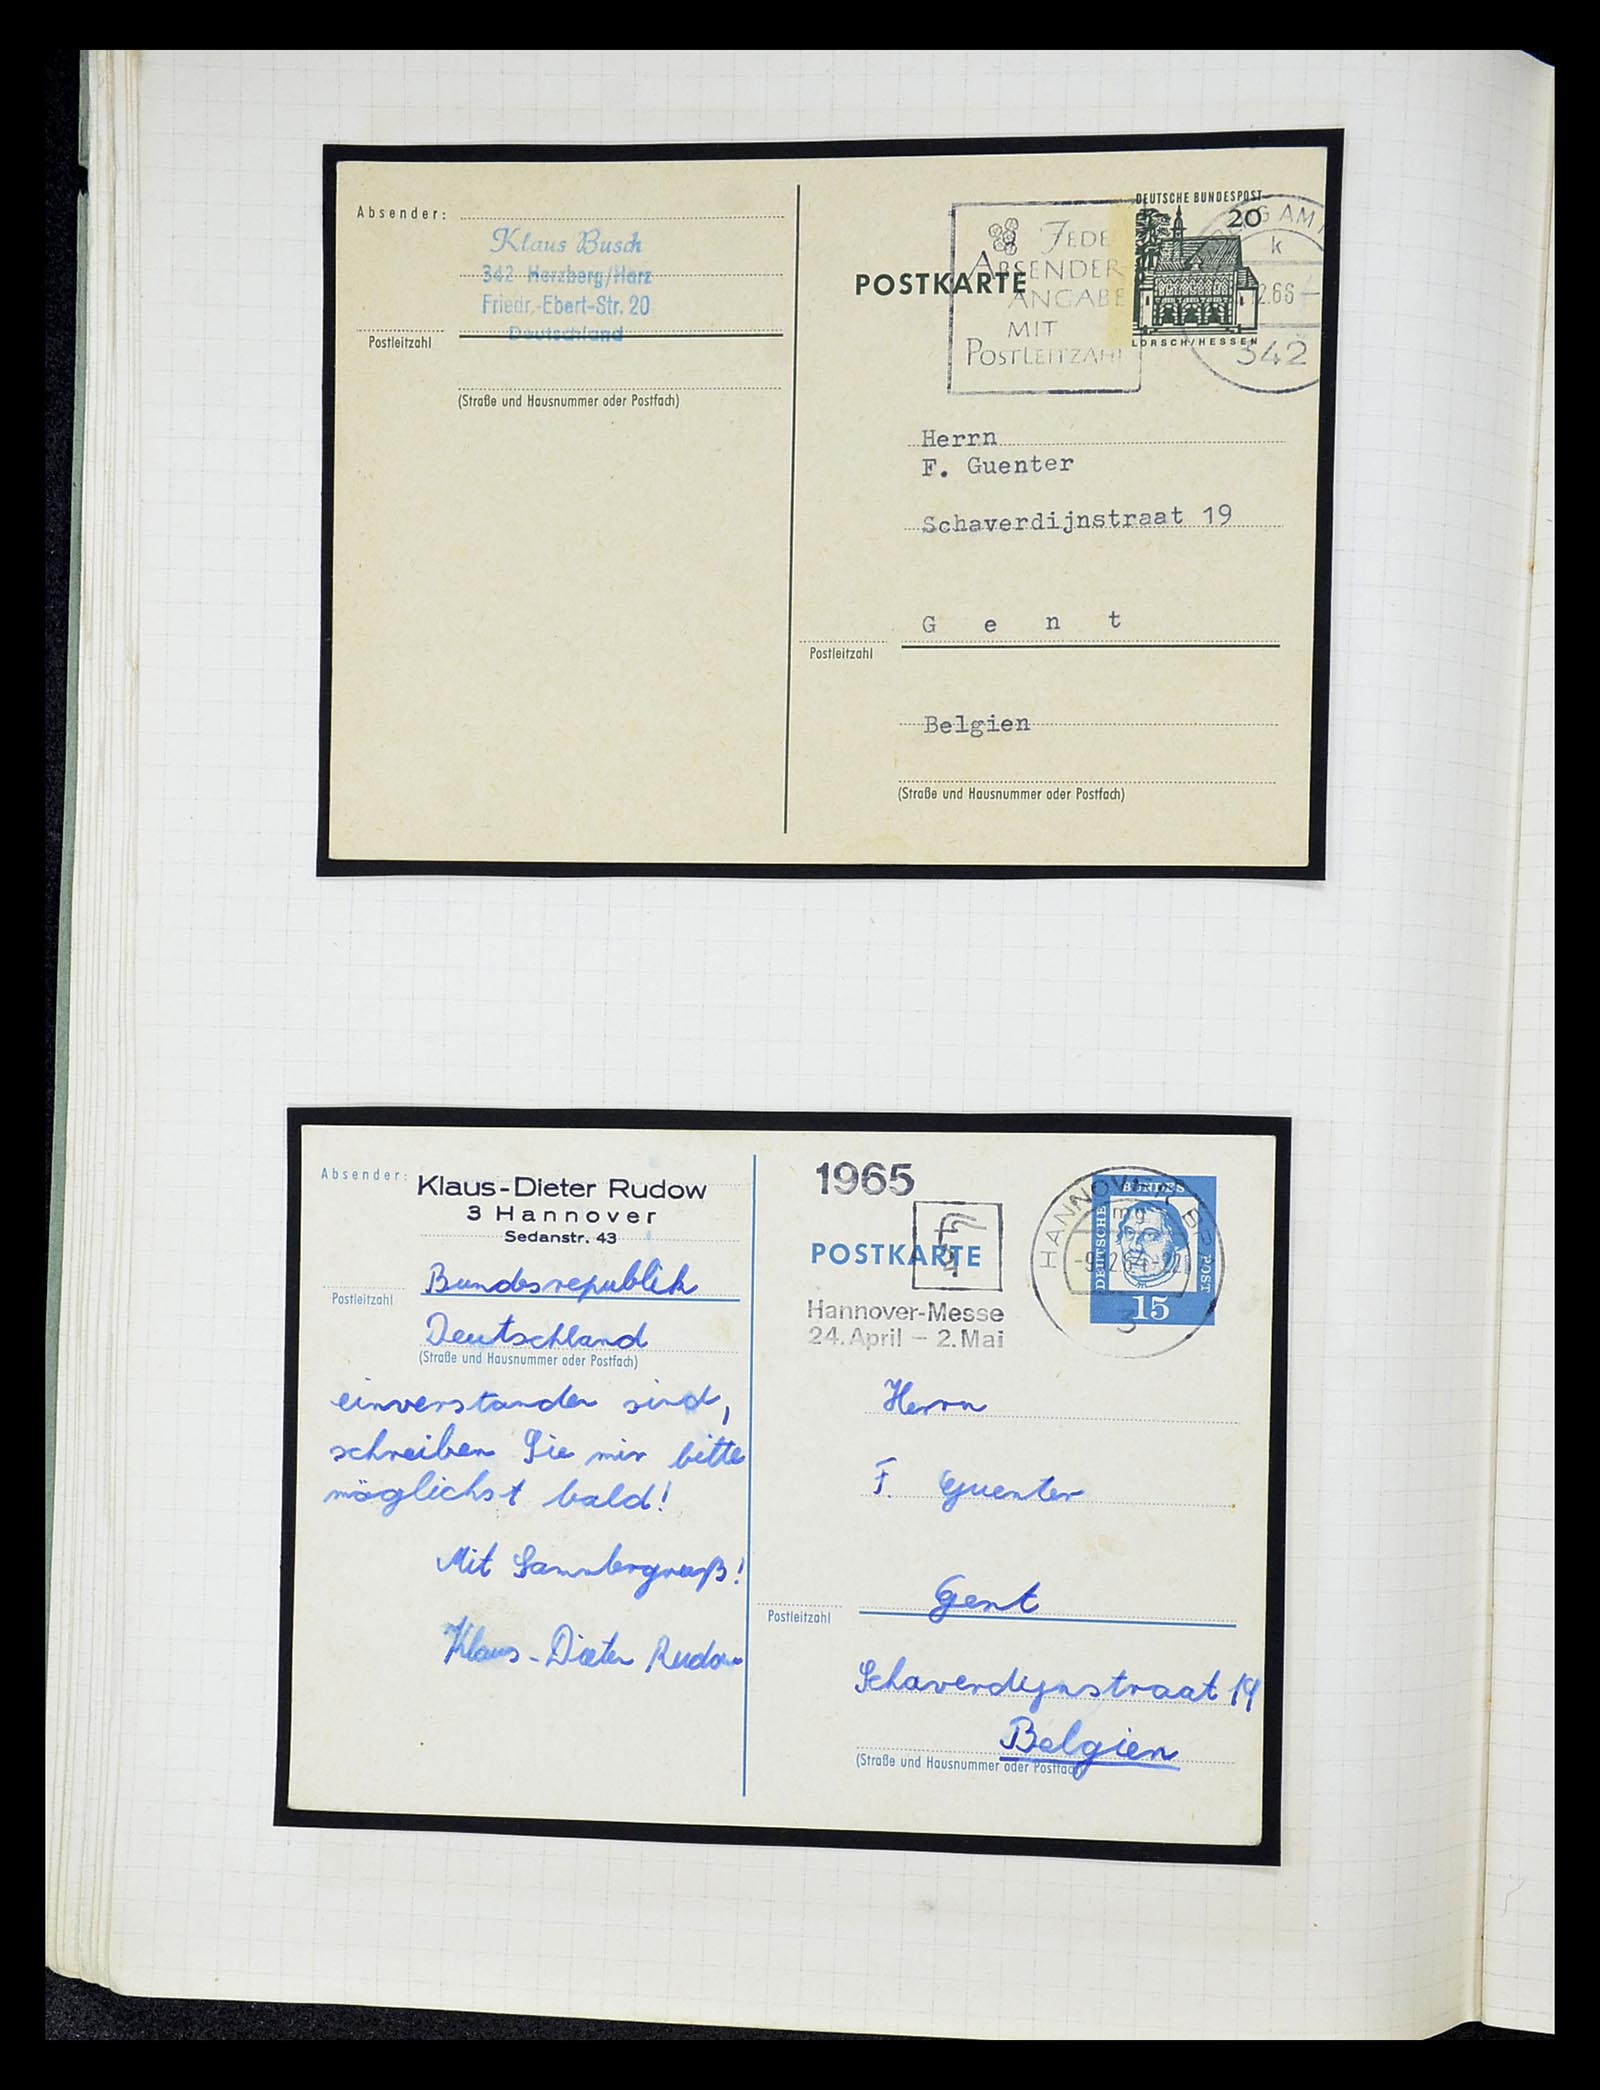 Absender:
Klaus Busch
342 Herzberg/Harz
Friedr.-Ebert-Str. 20
Deutschland
Postleitzahl
(Straße und Hausnummer oder Postfach)
POSTKARTE
JEDE
ABSENDER-
ANGABE
MIT
POSTLEITZAHL
DEUTSCHE BUNDESPOST
20
LORSCH/HESSEN
G AM
k
12.66
342
Herrn
F. Guenter
Schaverdijnstraat 19
G e n t
Postleitzahl
Belgien
(Straße und Hausnummer oder Postfach)
Absender:
Klaus-Dieter Rudow
3 Hannover
Sedanstr. 43
Bundesrepublik
Postleitzahl
Deutschland
(Straße und Hausnummer oder Postfach)
einverstanden sind,
schreiben Sie mir bitte
möglichst bald!
Mit Sammlergruß!
Klaus-Dieter Rudow
1965
POSTKARTE
Hannover-Messe
24. April – 2. Mai
HANNOVER BP
mg
-9.12.64-22
3
DEUTSCHE BUNDES POST
15
Herrn
F. Guenter
Gent
Postleitzahl
Schaverdynstraat 19
Belgien
(Straße und Hausnummer oder Postfach)